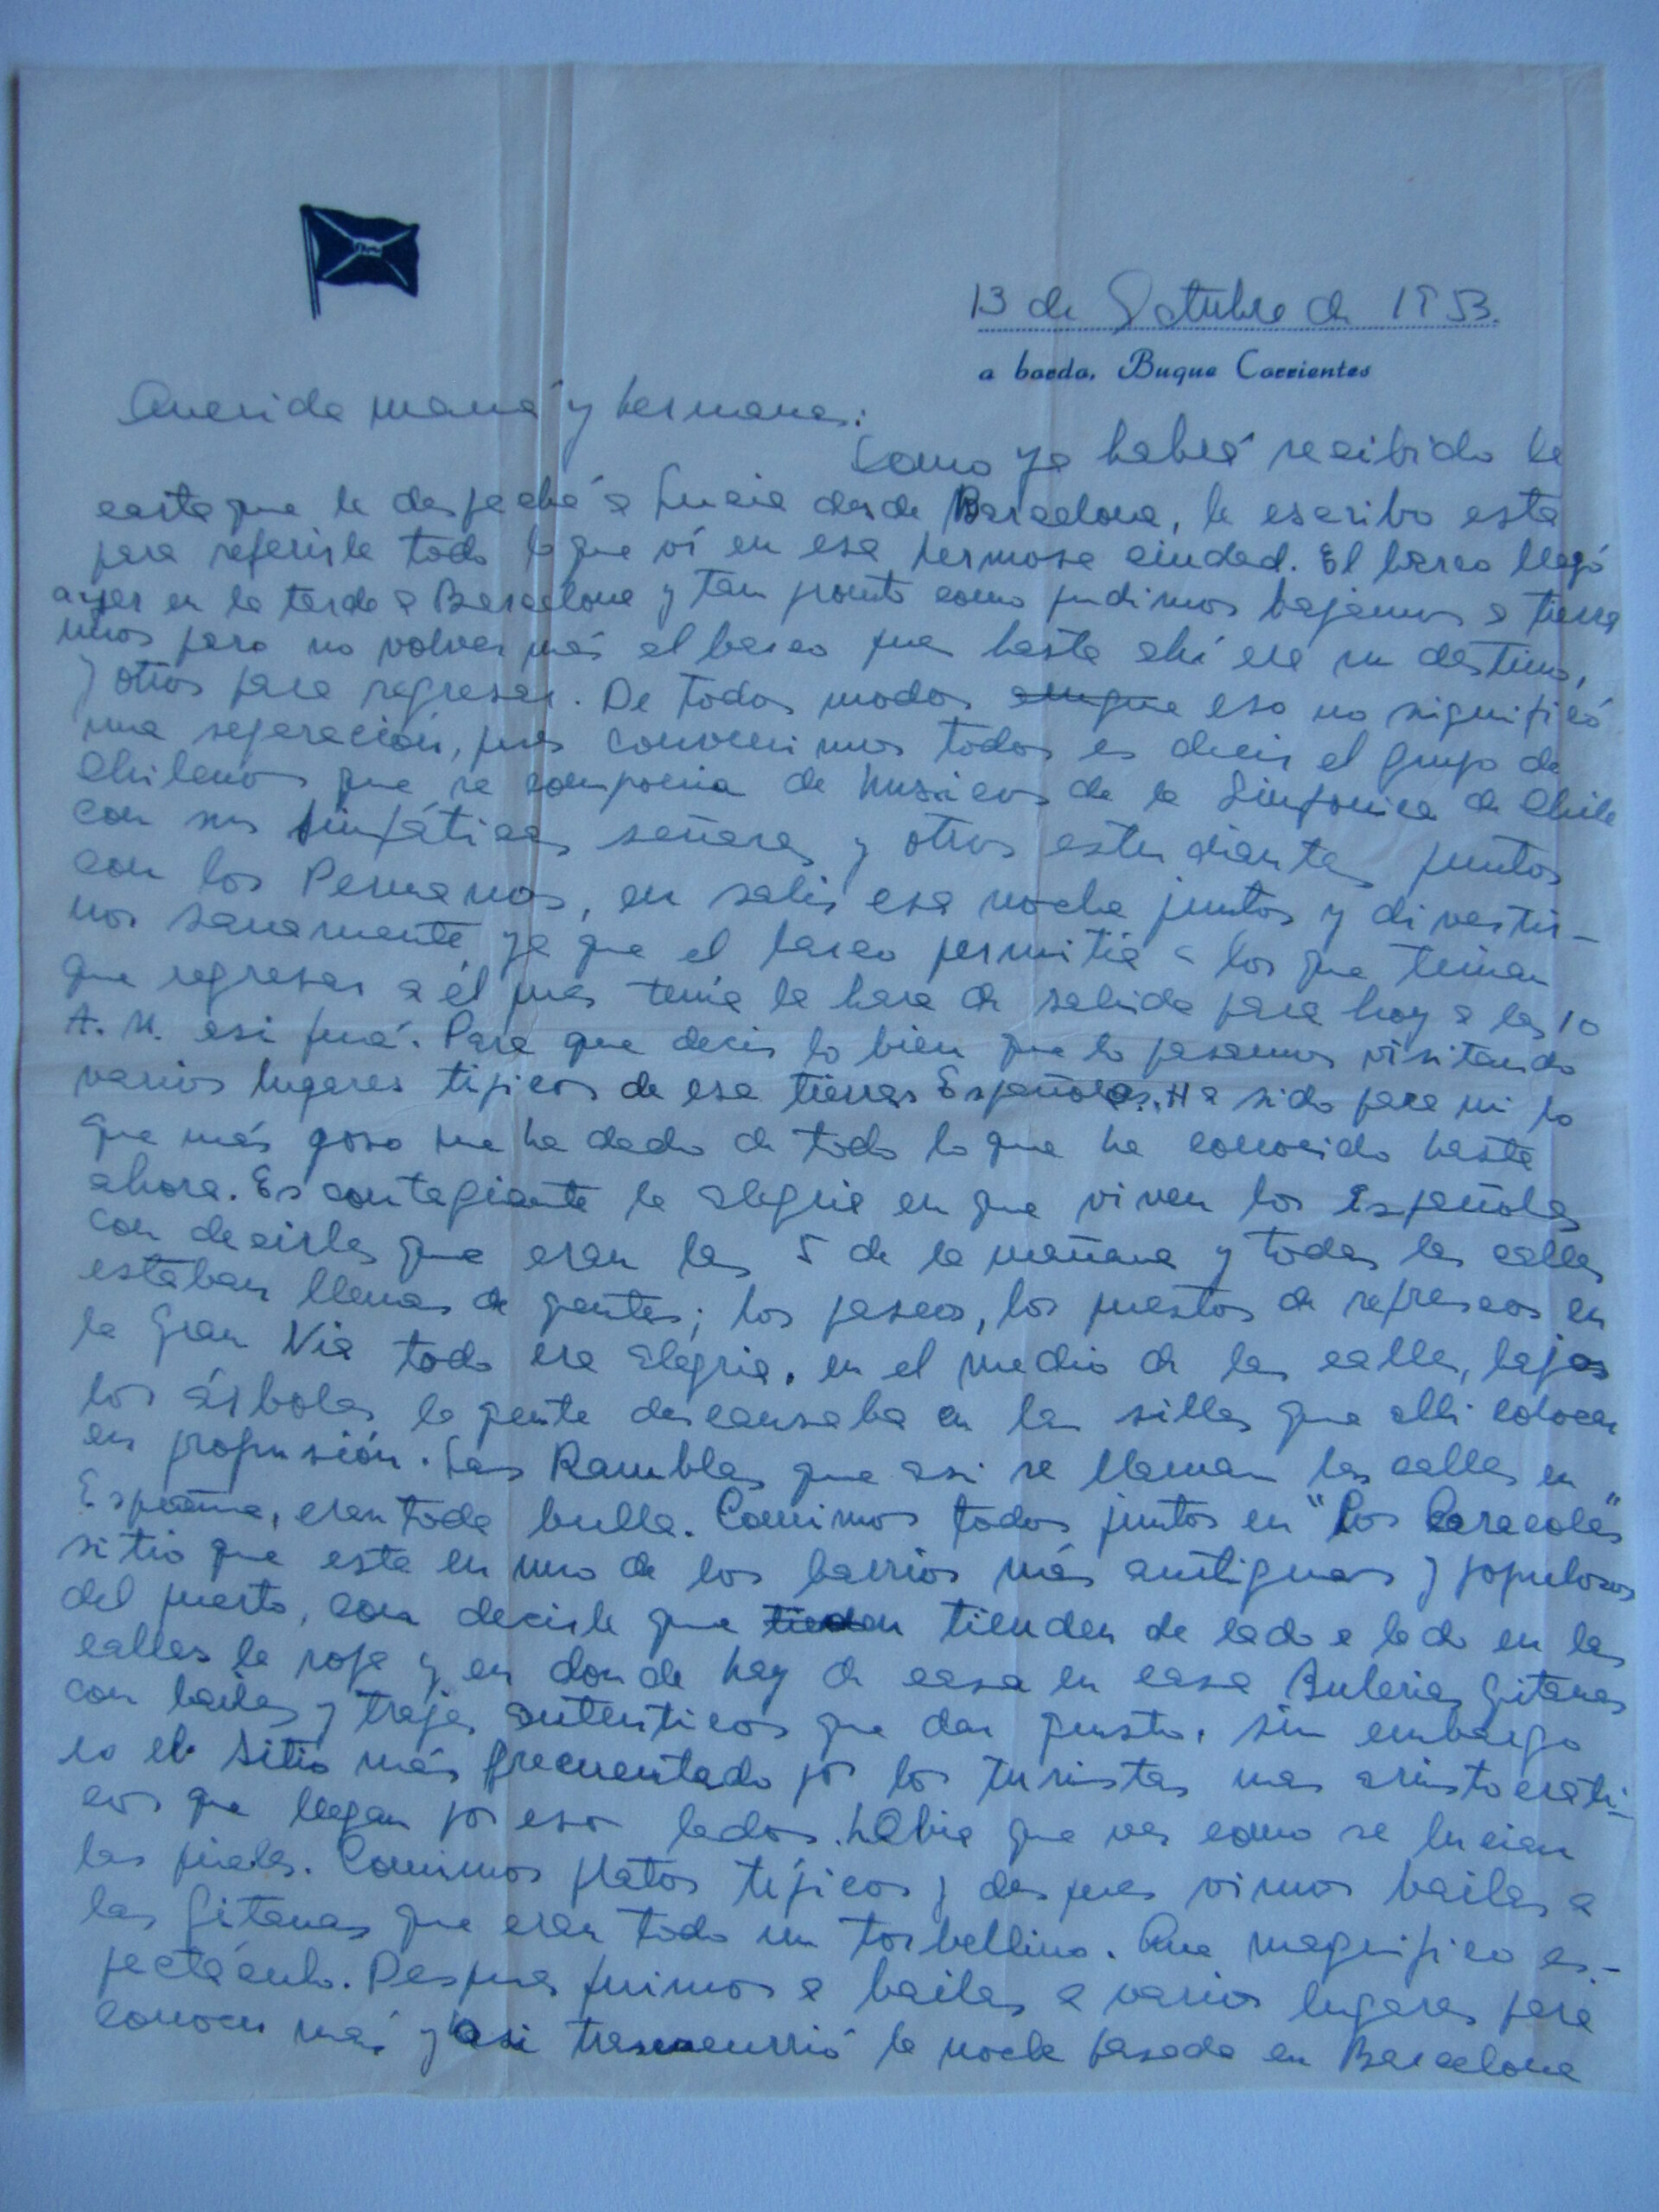 13 de Octubre de 1953.
a bordo, Buque Corrientes
Querida mamá y hermanas:
Como ya habrá recibido la
carta que le despaché a Lucia desde Barcelona, le escribo esta
para referirle todo lo que ví en esa hermosa ciudad. El barco llegó
ayer en la tarde a Barcelona y tan pronto como pudimos bajamos a tierra
unos para no volver más al barco pues hasta ahí era su destino,
y otros para regresar. De todos modos aunque eso no significó
una separación, pues convenimos todos es decir el grupo de
Chilenos que se componia de músicos de la Sinfonica de Chile
con sus simpáticas señoras y otros estudiantes juntos
con los Peruanos, en salir esa noche juntos y divertir-
nos sanamente ya que el barco permitía a los que tenían
que regresar a él pues tenía la hora de salida para hoy a las 10
A. M. asi fué. Para que decir lo bien que lo pasamos visitando
varios lugares tipicos de esa tierras Españolas. Ha sido para mi lo
que más goso me ha dado de todo lo que he conocido hasta
ahora. Es contagiante la alegria en que viven los Españoles
con decirles que eran las 5 de la mañana y todas las calles
estaban llenas de gentes; los paseos, los puestos de refrescos en
la Gran Via todo era alegria, en el medio de las calles, bajos
los árboles la gente descansaba en las sillas que alli colocan
en profusión. Las Ramblas que asi se llaman las calles en
España, eran toda bulla. Comimos todos juntos en "Los Caracoles"
sitio que esta en uno de los barrios más antiguos y populosos
del puerto, con decirle que tienden tienden de lado a lado en las
calles la ropa y en donde hay de casa en casa Bulerias Gitanas
con bailes y trajes autenticos que dan gusto, sin embargo
es el sitio más frecuentado por los turistas mas aristocráti-
cos que llegan por esos lados. Había que ver como se lucian
las pieles. Comimos platos típicos y despues vimos bailar a
las Gitanas que eran todo un torbellino. Que magnifico es-
pectáculo. Despues fuimos a bailar a varios lugares para
conocer más y asi trascurrió la noche pasada en Barcelona